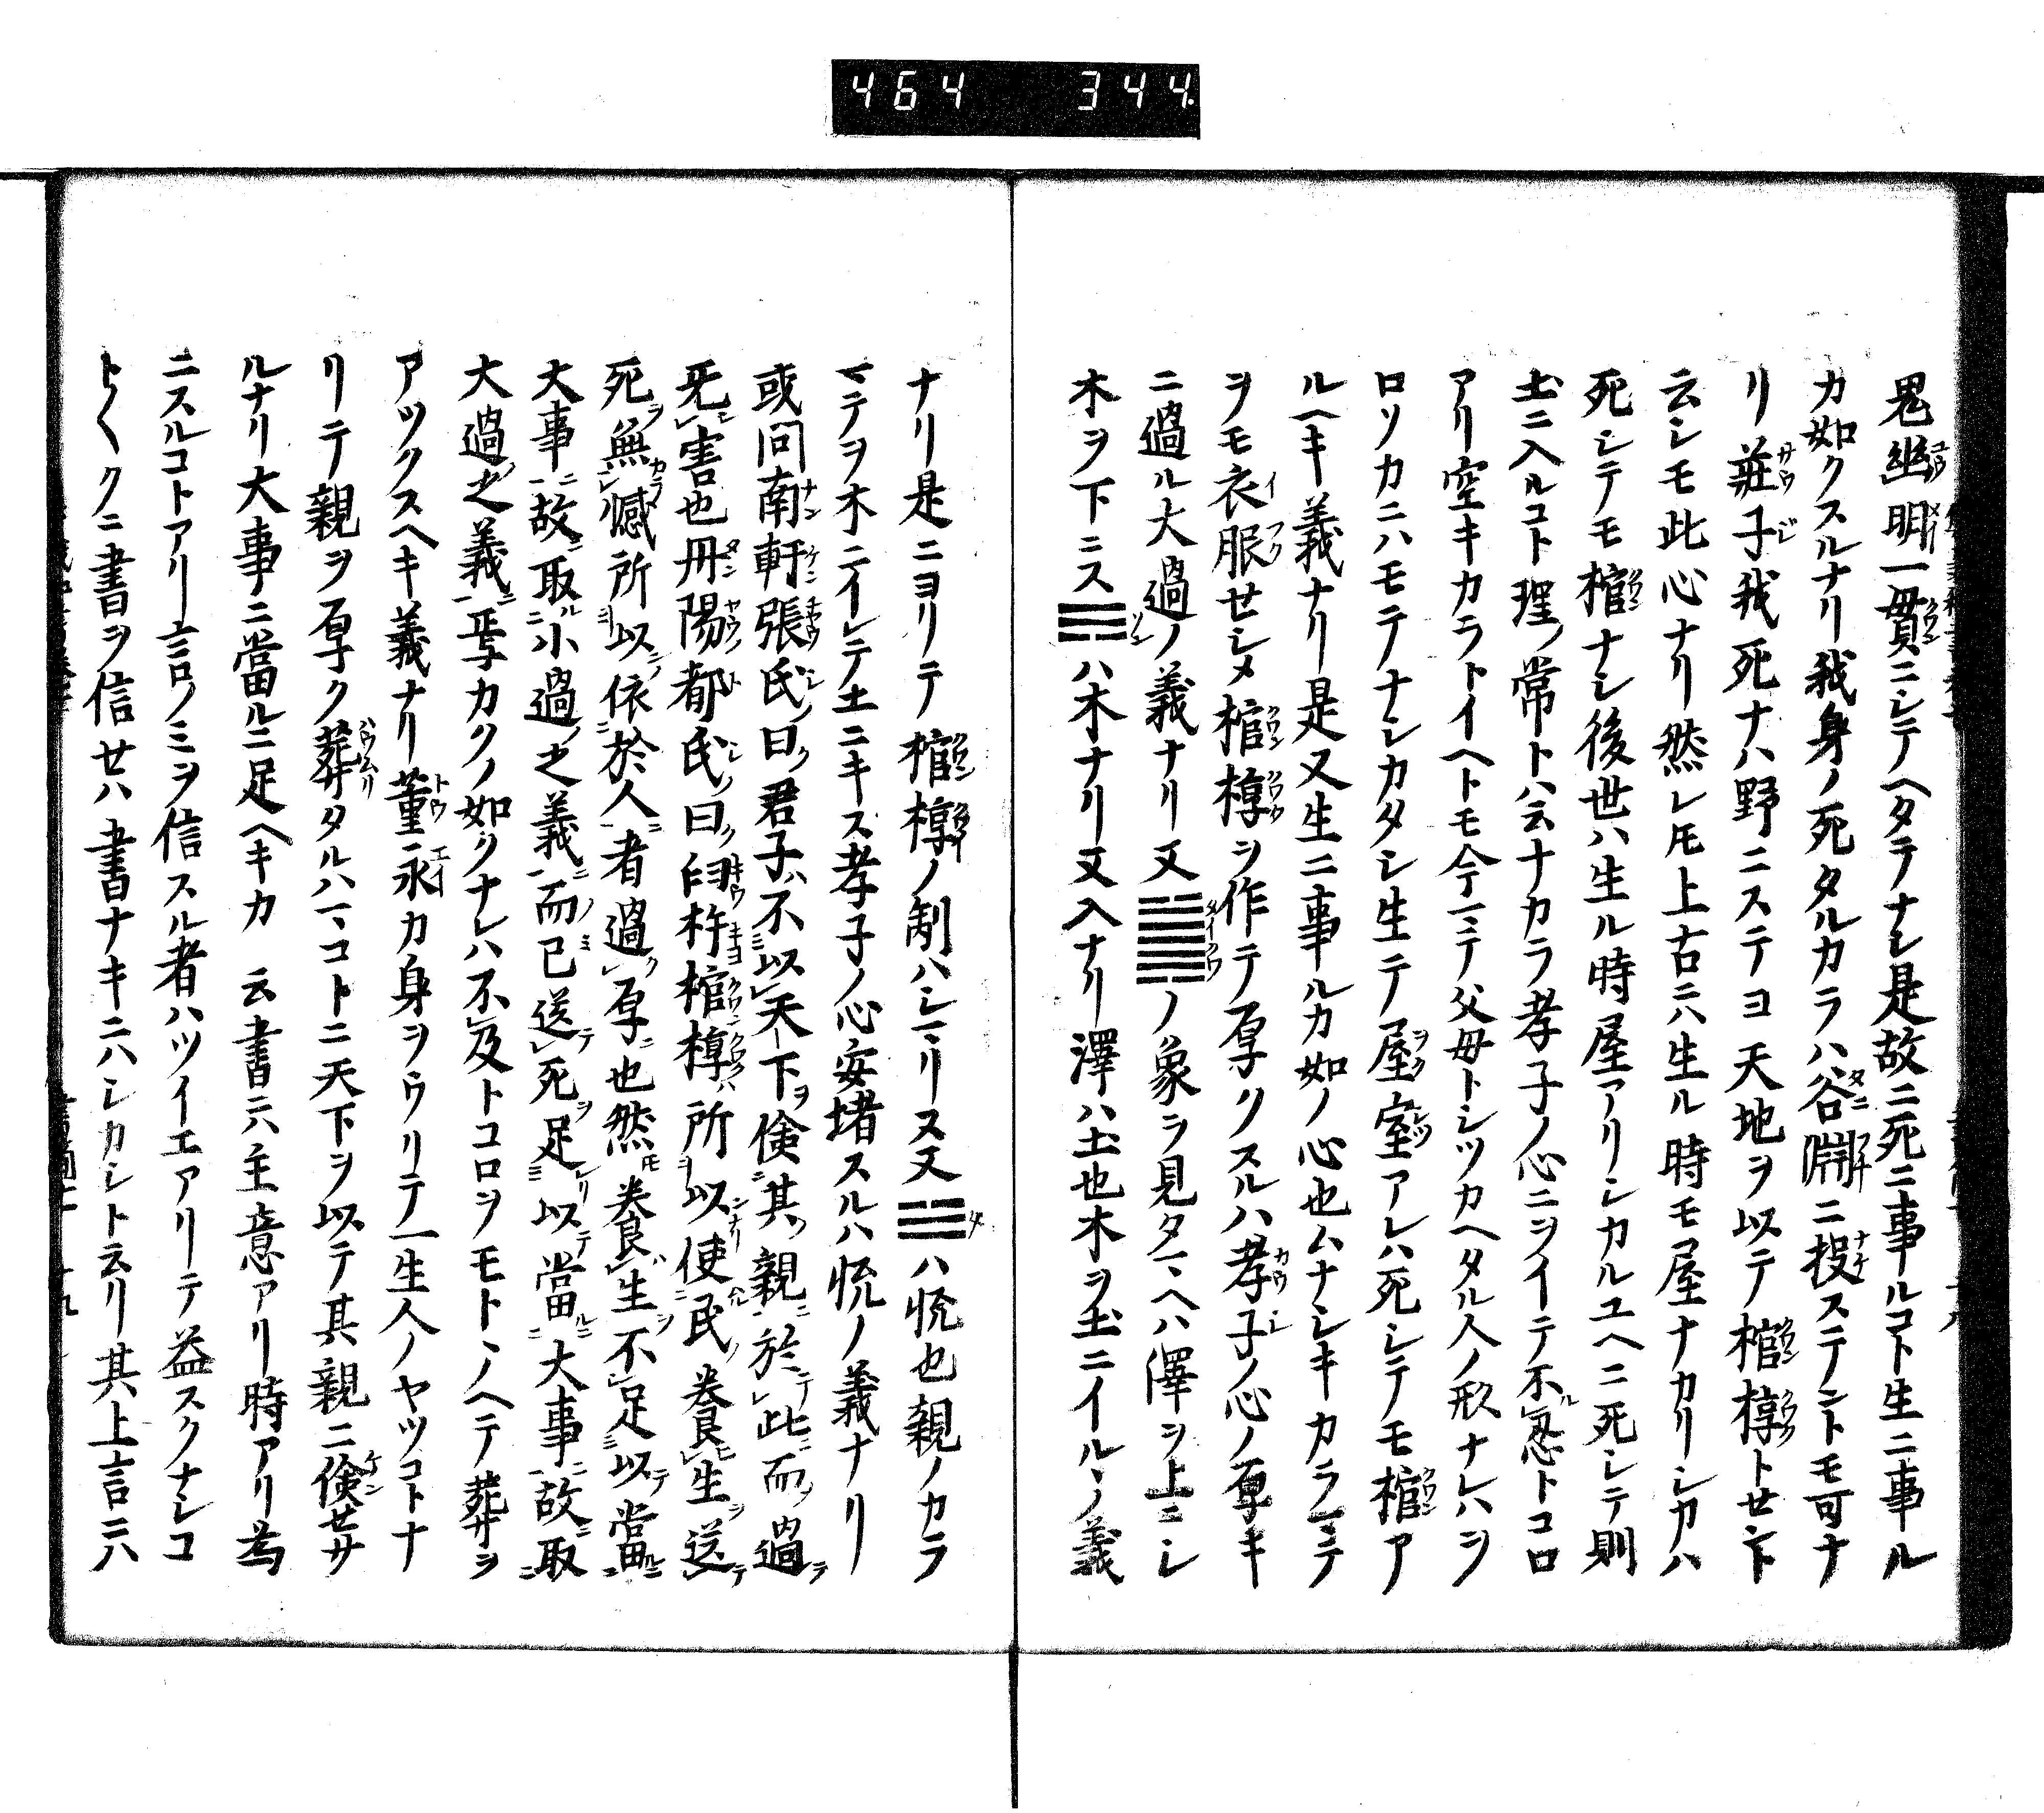 464 344
鬼幽明一貫ニシテヘタテナシ是故ニ死ニ事ルコト生ニ事ル
カ如クスルナリ我身ノ死タルカラハ谷淵ニ投ステントモ可ナ
リ莊子我死ナハ野ニステヨ天地ヲ以テ棺椁トセント
云シモ此心ナリ然レ𪜈上古ニハ生ル時モ屋ナカリシカハ
死シテモ棺ナシ後世ハ生ル時屋アリシカルユヘニ死シテ則
土ニ入ルコト理ノ常トハ云ナカラ孝子ノ心ニヲイテ不忍トコロ
アリ空キカラトイヘトモ今マテ父母トシツカヘタル人ノ形ナレハヲ
ロソカニハモテナシカタシ生テ屋室アレハ死シテモ棺ア
ルヘキ義ナリ是又生ニ事ルカ如ノ心也ムナシキカラマテ
ヲモ衣服セシメ棺椁ヲ作テ厚クスルハ孝子ノ心ノ厚キ
ニ過ル大過ノ義ナリ又䷛ノ象ヲ見タマヘハ澤ヲ上ニシ
木ヲ下ニス☴ハ木ナリ又入ナリ澤ハ土也木ヲ土ニイルヽノ義
ナリ是ニヨリテ棺椁ノ制ハシマリヌ又☱ハ悦也親ノカラ
マテヲ木ニイレテ土ニキス孝子ノ心安堵スルハ悦ノ義ナリ
或問南軒張氏曰君子不以天下儉其親於此而過
死害也丹陽都氏曰臼杵棺椁所以使民養生送
死無憾所以依於人者過厚也然養生不足以當
大事故取小過之義而已送死足以當大事故取
大過之義焉カクノ如クナレハ不及トコロヲモトヽノヘテ葬ヲ
アツクスヘキ義ナリ董永カ身ヲウリテ一生人ノヤツコトナ
リテ親ヲ厚ク葬タルハマコトニ天下ヲ以テ其親ニ儉セサ
ルナリ大事ニ當ルニ足ヘキカ 云書ニハ主意アリ時アリ為
ニスルコトアリ言ノミヲ信スル者ハツイエアリテ益スクナシコ
トヽクニ書ヲ信セハ書ナキニハシカシト云リ其上言ニハ